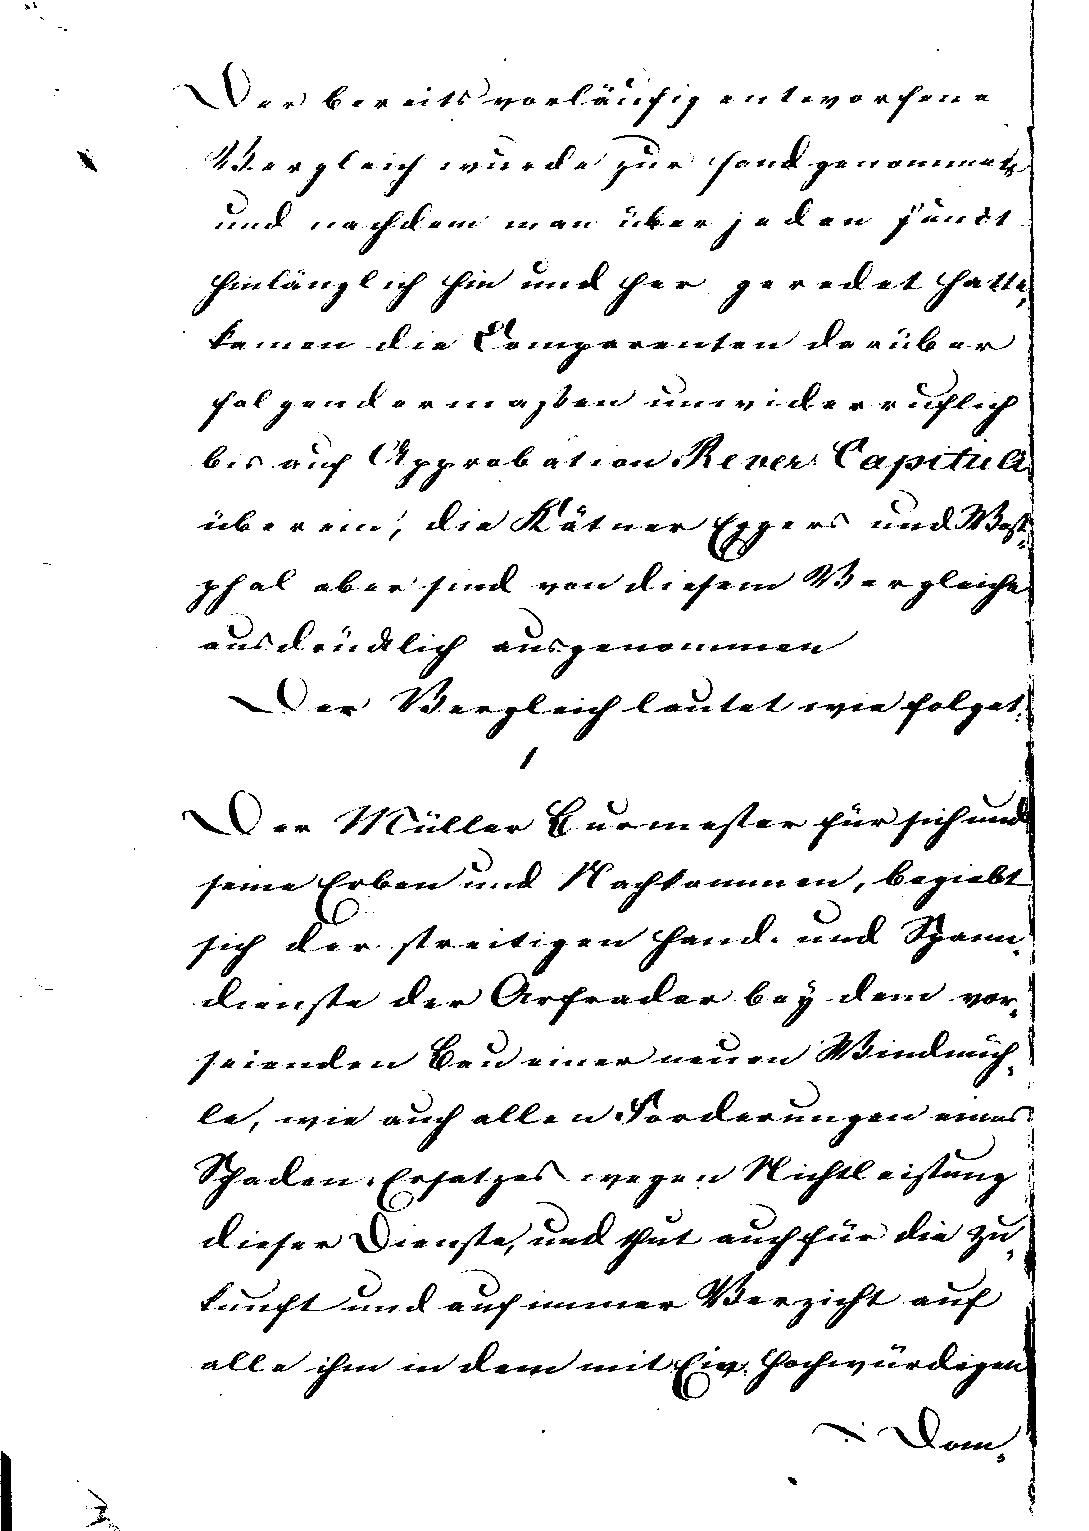 Der bereits vorläufig entworfene
Vergleich wurde zur Hand genommen
und nachdem man über jeden Punct
hinlänglich hin und her geredet hatte,
kamen die Comparenten darüber
folgendermaßen unwiderruflich
bis auf Approbation Rever: Capituli
überein, die Kätner Eggers und West-
phal aber sind von diesem Vergleiche
ausdrücklich ausgenommen
Der Vergleich lautet wie folget:
1
Der Müller Burmester für sich und
seine Erben und Nachkommen, begiebt
sich der streitigen Hand- und Spann-
dienste der Arfrader bey dem vor-
seienden Bau einer neuen Windmüh-
le, wie auch allen Forderungen eines
Schaden-Ersatzes wegen Nichtleistung
dieser Dienste, und thut auch für die Zu-
kunft und auf immer Verzicht auf
alle ihm in dem mit Ew. Hochwürdigen
Dom-